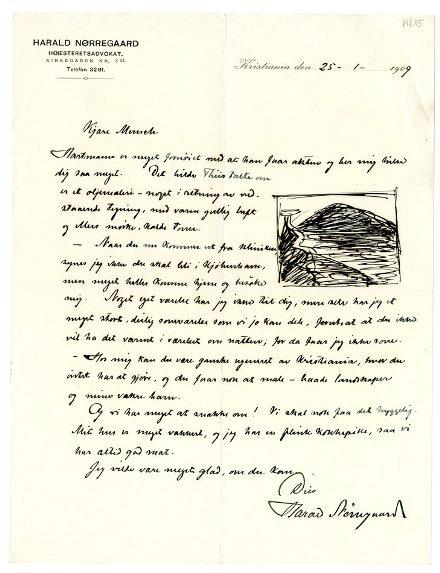 K 815
HARALD NØRREGAARD
HØIESTERETSADVOKAT.
KIRKEGADEN NR.
Telefon 3281.
Kristiania den 25 - 1 - 1909
Kjære Munch
er meget fornøiet med at han faar aktien og ber mig hilse
dig saa meget. Det bilde Thiis talte om
er et oljemaleri - noget i retning av ved-
staaende tegning, med varm gullig luft
og ellers mørke, kolde farver.
- Naar du nu kommer ut fra kliniken
synes jeg ikke du skal bli i Kjøbenhavn,
men meget heller komme hjem og besøke
mig. Noget eget værelse har jeg ikke til dig, men selv har jeg et
meget stort, deilig soveværelse som vi jo kan dele, forutsat at du ikke
vil ha det varmt i værelset om natten, for da faar jeg ikke sove.
- Hos mig kan du være ganske ugenert av Kristiania, hvor du
intet har at gjøre, og du faar nok at male - baade landskaper
og mine vakre barn.
Og vi har meget at snakke om! Vi skal nok faa det hyggelig.
Mit hus er meget vakkert, og jeg har en flink kokkepike, saa vi
har altid god mat.
Jeg vilde være meget glad, om du kom.
Din
Harald Nørregaard